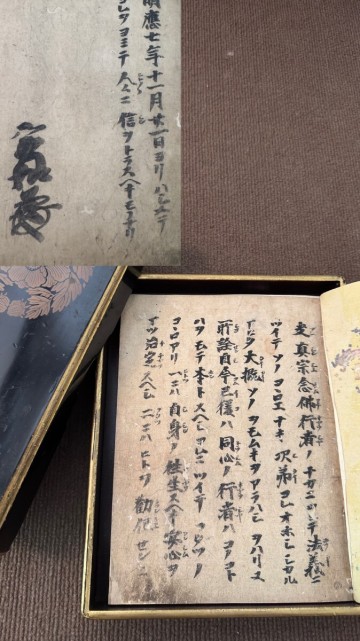 明應七年十一月廿一日ヨリハシメテ
コレヲヨミテ人々ニ信ヲトラスヘキモノナリ
夫真宗念佛行者ノナカニヲヒテ法義ニ
ツイテソノコヽロエナキ次第コレオホシシカル
アヒタ大概ソノヲモムキヲアラハシヲハリヌ
所詮自今已後ハ同心ノ行者ハコノコト
ハヲモテ本トスヘシコレニツイテフタツノ
コヽロアリ一ニハ自身ノ往生スヘキ安心ヲ
マツ治定スヘシ二ニハヒトヲ勧化センニ